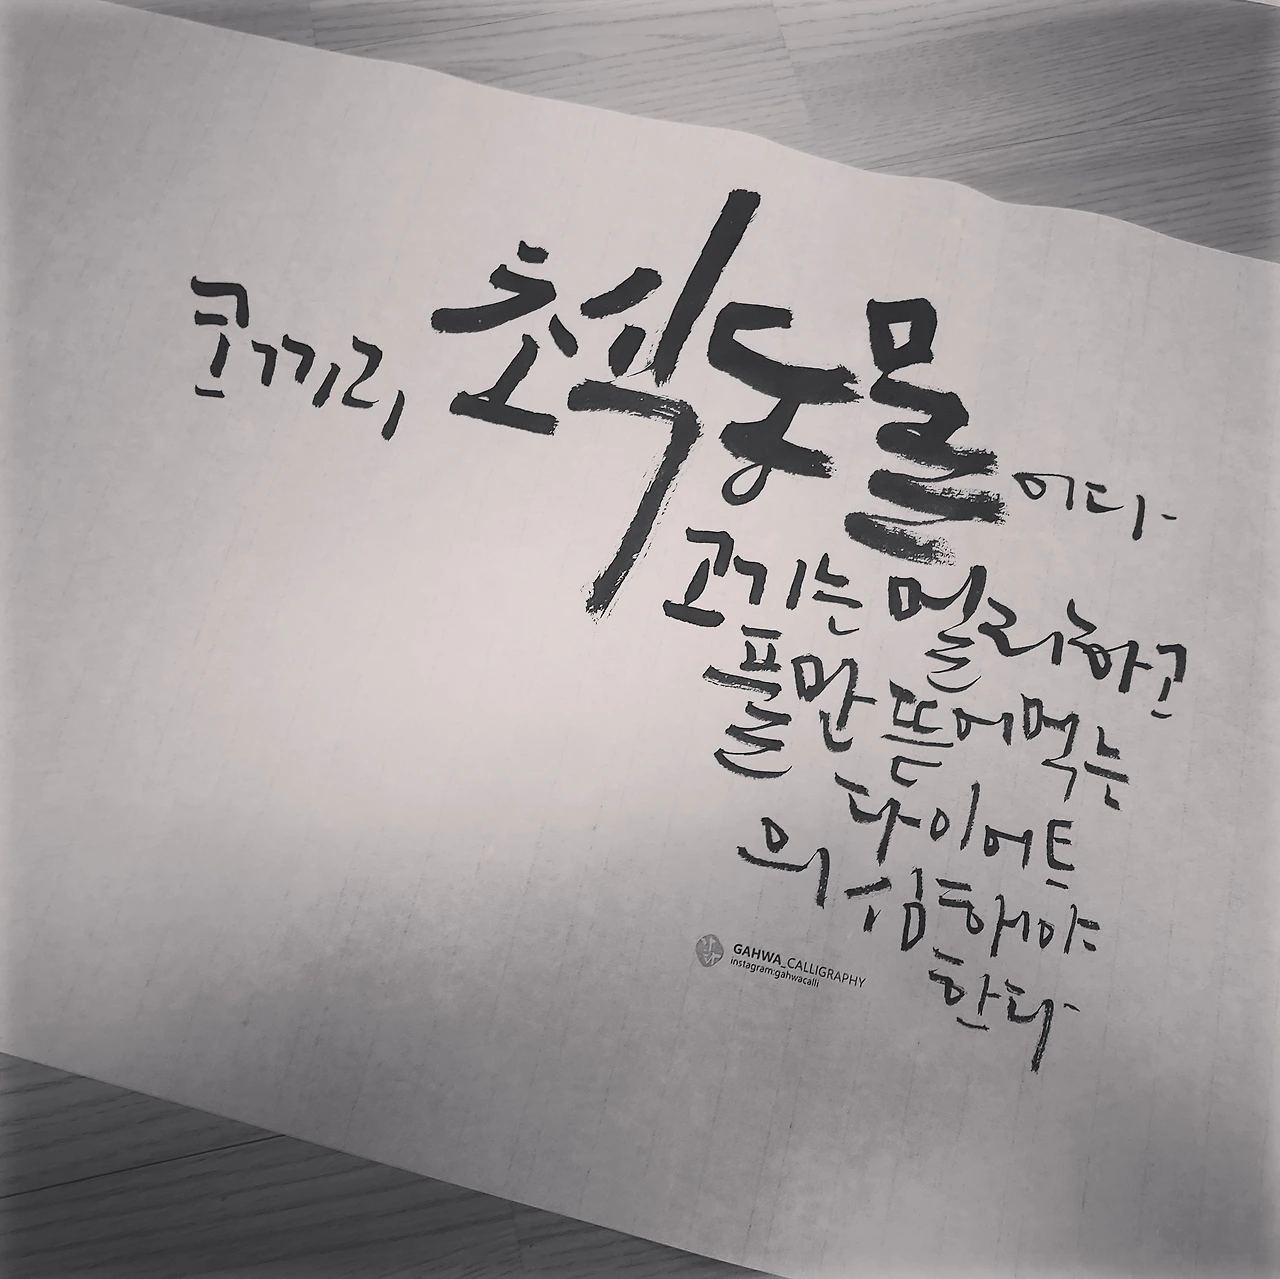 코끼리, 초식동물이다
고기는 멀리하고
풀만 뜯어먹는
다이어트
의심해야
한다
GAHWA_CALLIGRAPHY
instagram:gahwacalli